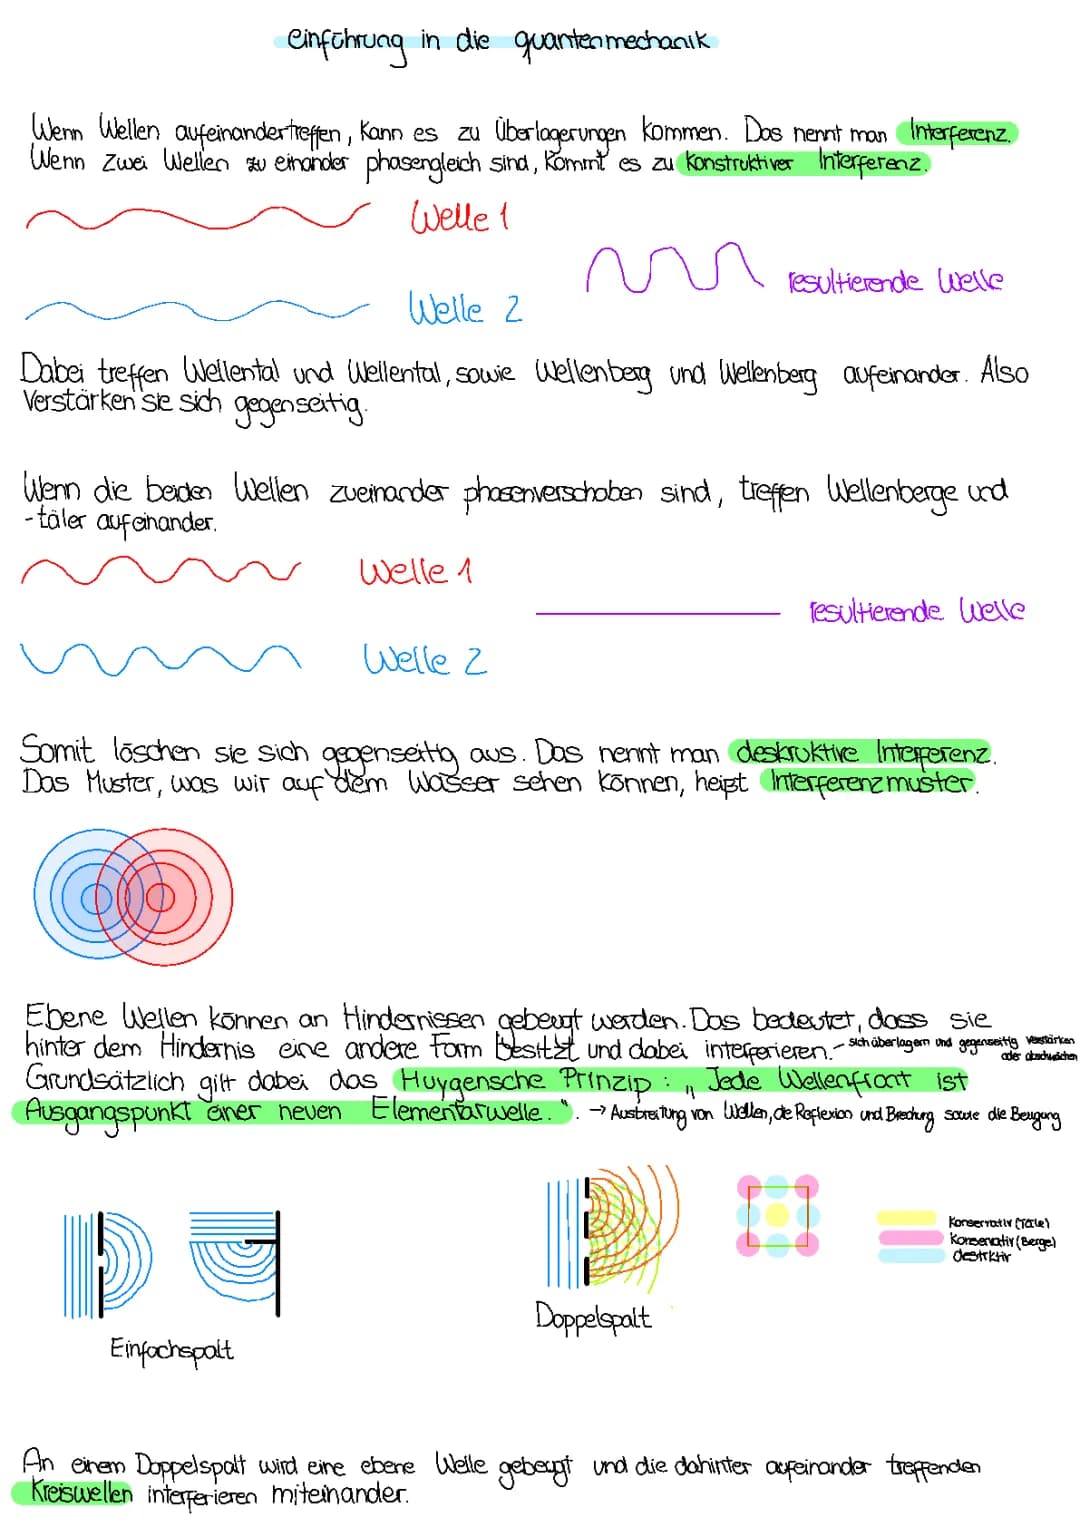 einführung in die quantenmechanik
Wenn Wellen aufeinandertreffen, kann es zu Überlagerungen kommen. Das nennt man Interferenz.
Wenn zwei Wellen zu einander phasengleich sind, kommt es zu konstruktiver Interferenz.
Welle 1
resultierende Welle
Welle 2
Dabei treffen Wellental und Wellental, sowie Wellenberg und Wellenberg aufeinander. Also
verstärken sie sich gegenseitig.
Wenn die beiden Wellen zueinander phasenverschoben sind, treffen Wellenberge und
-täler aufeinander.
Welle 1
resultierende Welle
Welle 2
Somit löschen sie sich gegenseitig aus. Das nennt man deskruktive Interferenz.
Das Muster, was wir auf dem Wasser sehen können, heißt Interferenzmuster.
Ebene Wellen können an Hindernissen gebeugt werden. Das bedeutet, dass sie
hinter dem Hindernis eine andere Form besitzt und dabei interferieren. - sich überlagern und gegenseitig verstärken
oder abschwächen
Grundsätzlich gilt dabei das Huygensche Prinzip: „Jede Wellenfront ist
Ausgangspunkt einer neuen Elementarwelle.". → Ausbreitung von Wellen, de Reflexion und Brechung sowie die Beugung
Konservativ (Täle)
Konservativ (Berge)
destrktiv
Doppelspalt
Einfachspalt
An einem Doppelspalt wird eine ebene Welle gebeugt und die dahinter aufeinander treffenden
Kreiswellen interferieren miteinander.